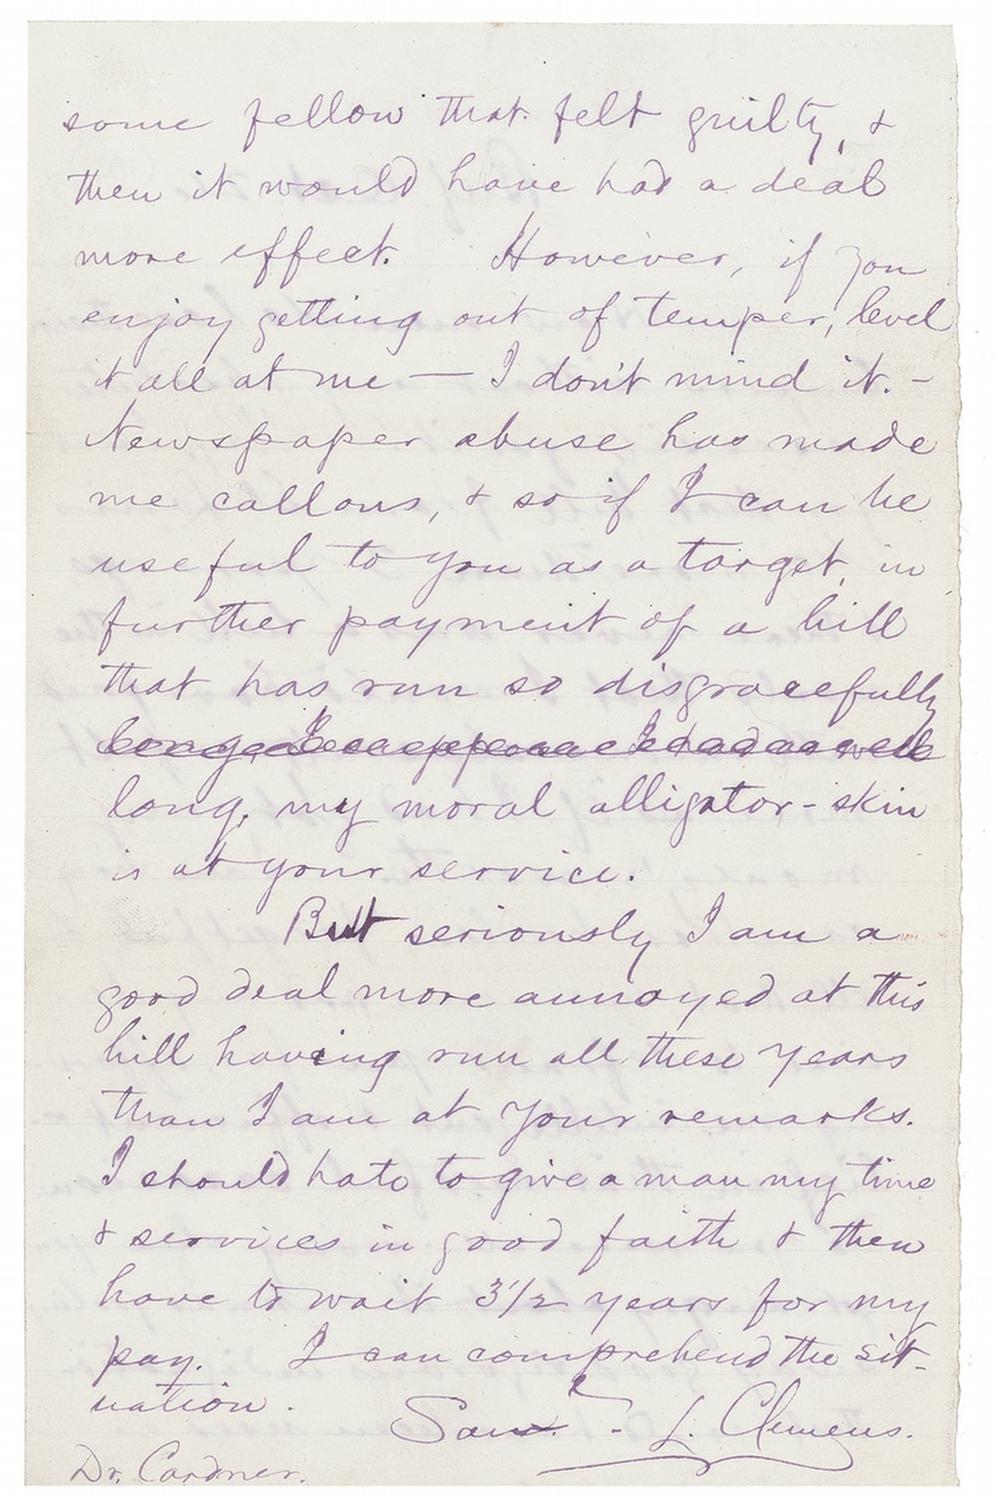 some fellow that felt guilty, &
then it would have had a deal
more effect. However, if you
enjoy getting out of temper, level
it all at me — I don't mind it. –
Newspaper abuse has made
me callous, & so if I can be
useful to you as a target, in
further payment of a bill
that has run so disgracefully
long, my moral alligator-skin
is at your service.
But seriously I am a
good deal more annoyed at this
bill having run all these years
than I am at your remarks.
I should hate to give a man my time
& services in good faith & then
have to wait 3 1/2 years for my
pay. I can comprehend the sit-
uation.
Sam. L. Clemens.
Dr. Cardner.